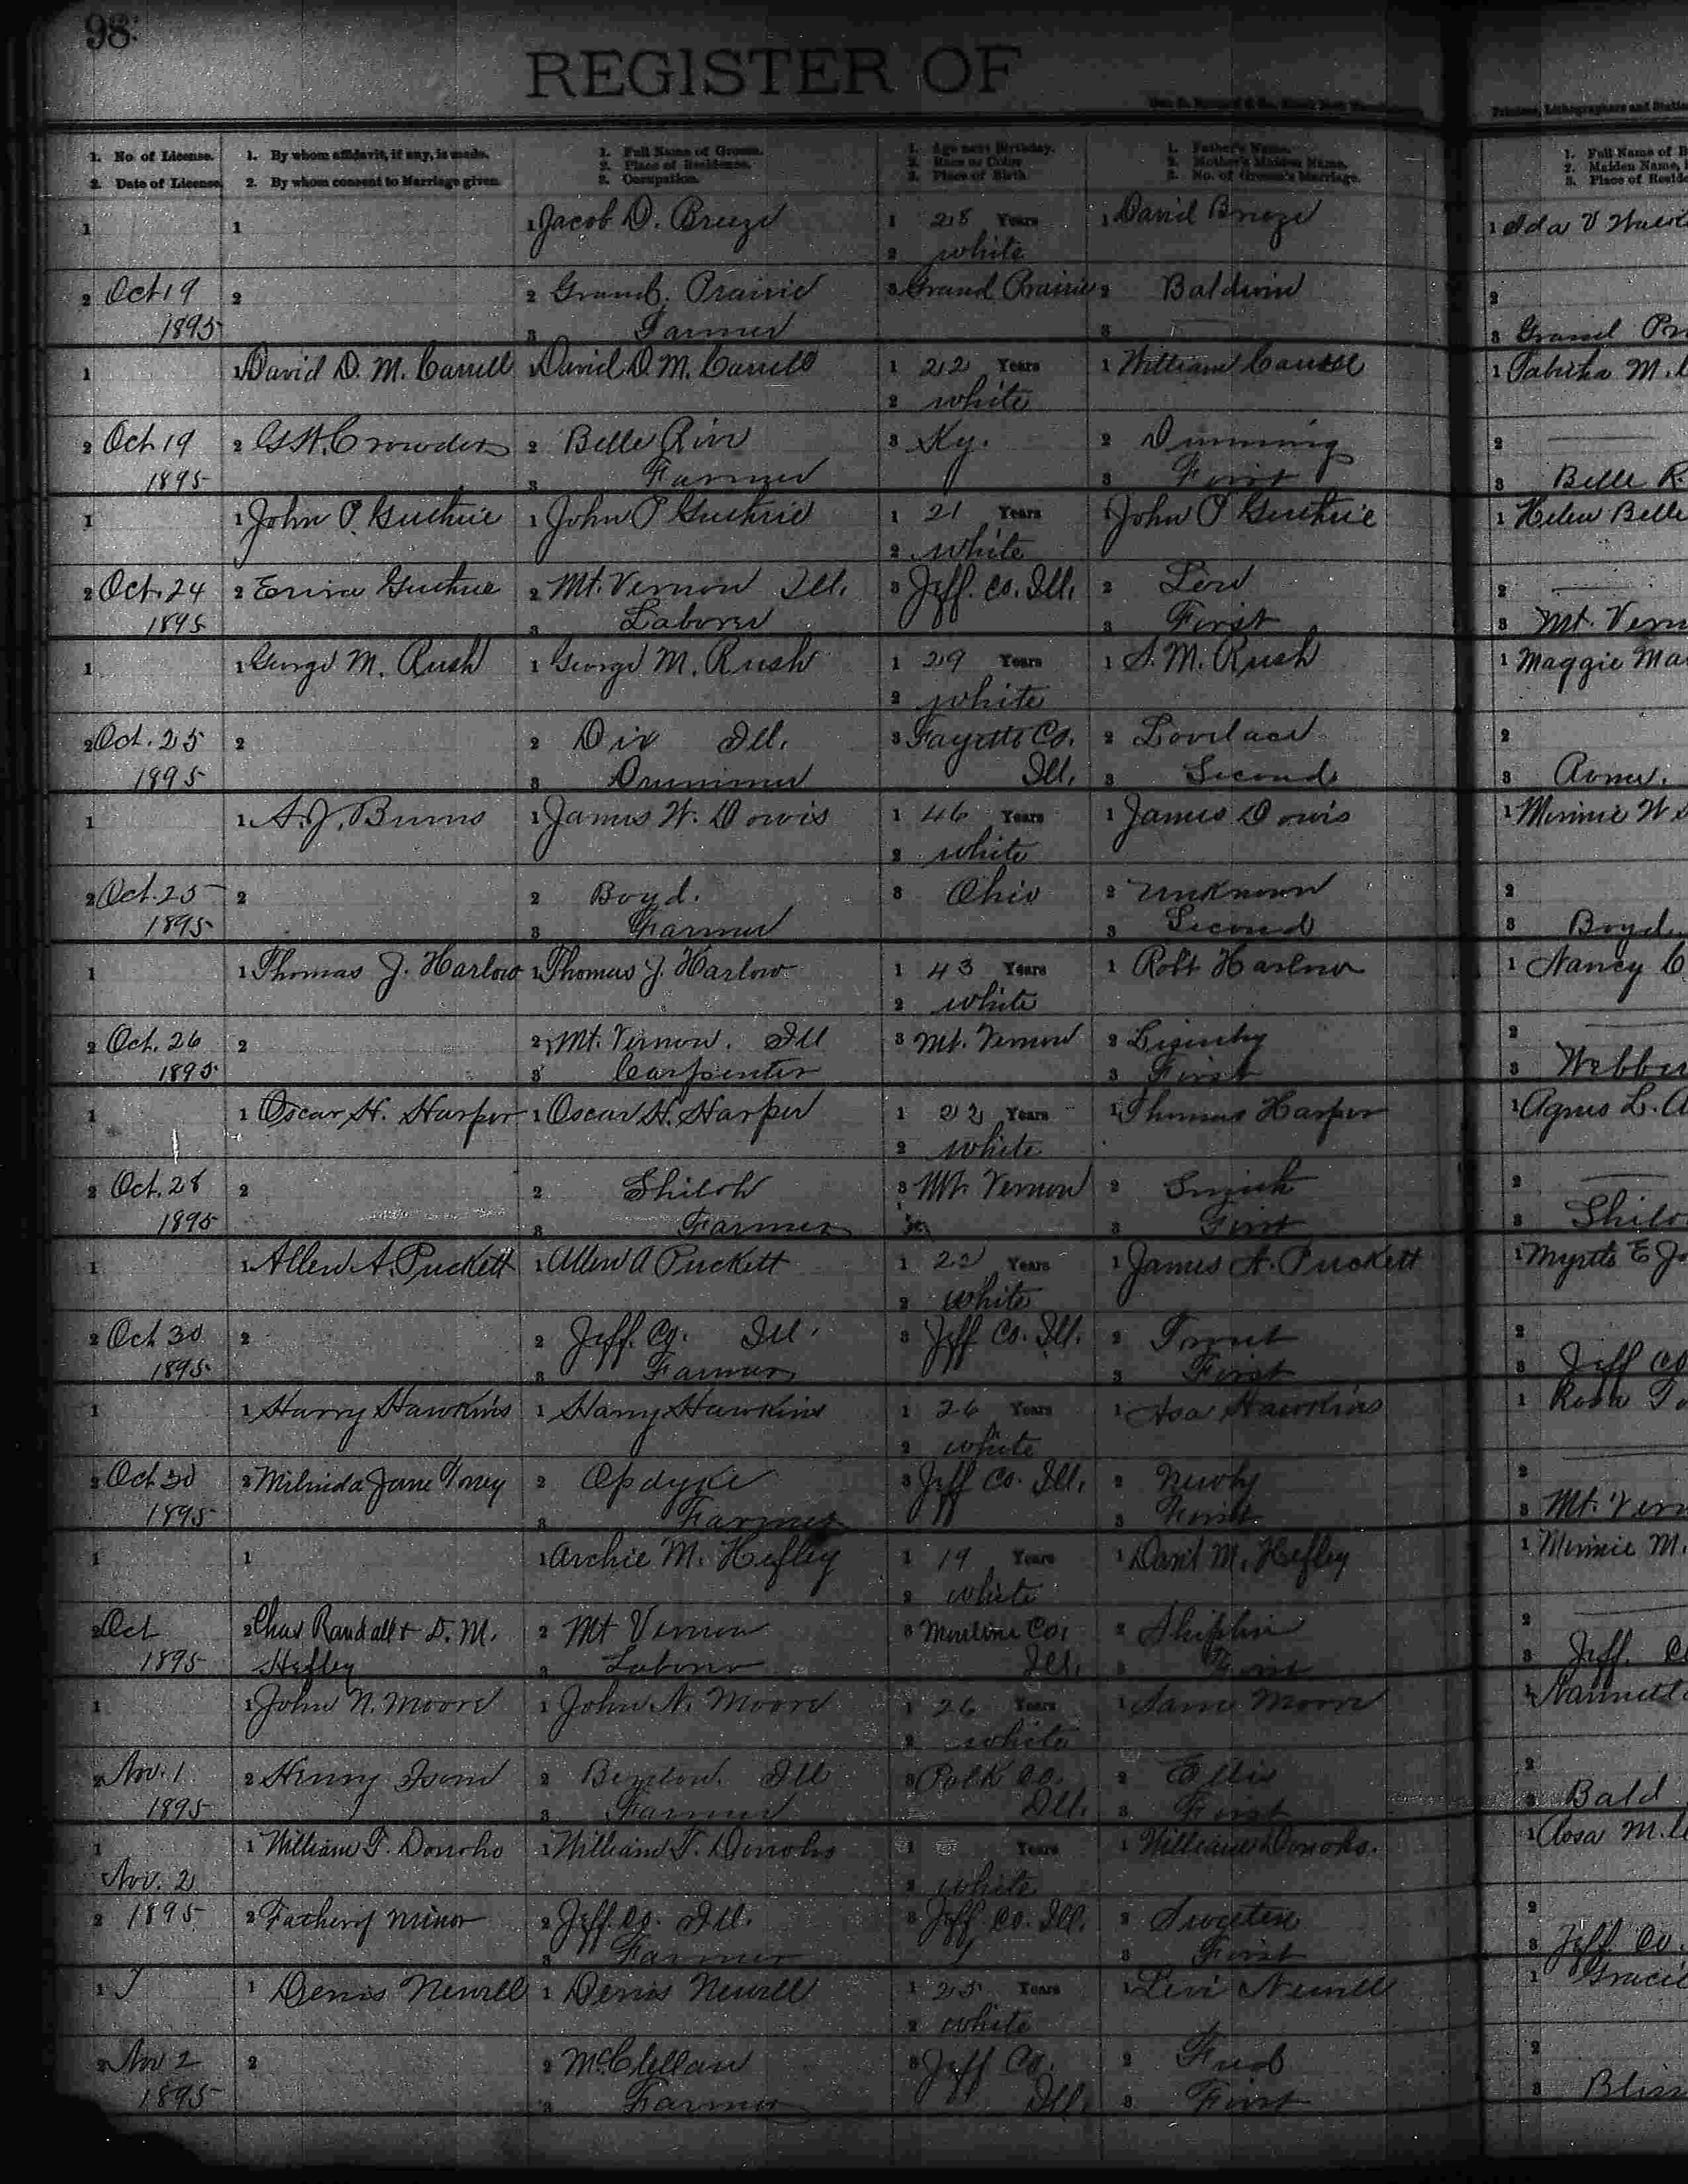 98
REGISTER OF
1. No. of License.
2. Date of License.
1. By whom affidavit, if any, is made.
2. By whom consent to Marriage given.
1. Full Name of Groom.
2. Place of Residence.
3. Occupation.
1. Age next Birthday.
2. Race or Color
3. Place of Birth
1. Father's Name.
2. Mother's Maiden Name.
3. No. of Groom's Marriage.
1. Full Name of B
2. Maiden Name,
3. Place of Reside
1 1 1 Jacob D. Breeze 1 28 Years 1 David Breeze 1 Ida V
2 white
2 Oct 19 2 2 Grand Prairie 3 Grand Prairie 2 Baldwin 2
1895 3 Farmer 3 3 Grand Pr
1 1 David D. M. Carrell 1 David D. M. Carrell 1 22 Years 1 William Carrell 1 Tabitha M.
2 white
2 Oct. 19 2 Crowder 2 Belle Rive 3 Ky. 2 Dimming 2
1895 3 Farmer 3 First 3 Belle R.
1 1 John P. Guthrie 1 John P Guthrie 1 21 Years 1 John P Guthrie 1 Helen Belle
2 white
2 Oct. 24 2 Guthrie 2 Mt. Vernon Ill. 3 Jeff. Co. Ill. 2 2
1895 3 Laborer 3 First 3 Mt. Vern
1 1 George M. Rush 1 George M. Rush 1 29 Years 1 S. M. Rush 1 Maggie Ma
2 white
2 Oct. 25 2 2 Dix Ill. 3 Fayette Co. 2 Lovelace 2
1895 3 Drummer Ill. 3 Second 3
1 1 A. J. Burns 1 James W. Dowis 1 46 Years 1 James Dowis 1 Minnie W
2 white
2 Oct. 25 2 2 Boyd. 3 Ohio 2 Unknown 2
1895 3 Farmer 3 Second 3 Boyd
1 1 Thomas J. Harlow 1 Thomas J. Harlow 1 43 Years 1 Robt Harlow 1 Nancy C
2 white
2 Oct. 26 2 2 Mt. Vernon. Ill 3 Mt. Vernon 2 2
1895 3 Carpenter 3 First 3 Webber
1 1 Oscar H. Harper 1 Oscar H. Harper 1 22 Years 1 Thomas Harper 1 Agnes L. A
2 white
2 Oct. 28 2 2 Shiloh 3 Mt. Vernon 2 Smith 2
1895 3 Farmer 3 First 3 Shilo
1 1 Allen A. Puckett 1 Allen A Puckett 1 22 Years 1 James A. Puckett 1 Myrtle E Jo
2 white
2 Oct 30 2 2 Jeff. Co. Ill. 3 Jeff Co. Ill. 2 Trout 2
1895 3 Farmer 3 First 3 Jeff Co
1 1 Harry Hawkins 1 Harry Hawkins 1 26 Years 1 Asa Hawkins 1 Rosa To
2 white
2 Oct 30 2 Melinda Jane Toney 2 Opdyke 3 Jeff Co. Ill. 2 Newby 2
1895 3 Farmer 3 First 3 Mt. Vern
1 1 1 Archie M. Hefley 1 19 Years 1 Danl M. Hefley 1 Minnie M.
2 white
2 Oct 2 Chas Randall & D. M. 2 Mt Vernon 3 Co. 2 2
1895 Hefley 3 Laborer Ill. 3 First 3 Jeff. C
1 1 John N. Moore 1 John N. Moore 1 26 Years 1 Sam Moore 1
2 white
2 Nov. 1 2 Henry Isom 2 Benton. Ill 3 Polk Co. 2 Ellis 2
1895 3 Farmer Ill. 3 First 3 Bald
1 1 William T. Donoho 1 William T. Donoho 1 Years 1 William Donoho. 1 Rosa M.
Nov. 2 2 white
2 1895 2 Father of minor 2 Jeff. Co. Ill. 3 Jeff Co. Ill. 2 Sweeten 2
3 Farmer 3 First 3 Jeff. Co.
1 1 Denis Newell 1 Denis Newell 1 25 Years 1 Levi Newell 1 Gracie
2 white
2 Nov 2 2 2 McClellan 3 Jeff Co. 2 2
1895 3 Farmer Ill. 3 First 3